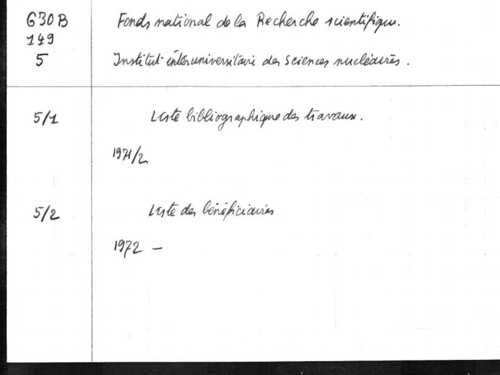 630B Fonds national de la Recherche scientifique.
149
5 Institut interuniversitaire des sciences nucléaires.
5/1 Liste bibliographique des travaux.
1971/2
5/2 Liste des bénéficiaires
1972 —